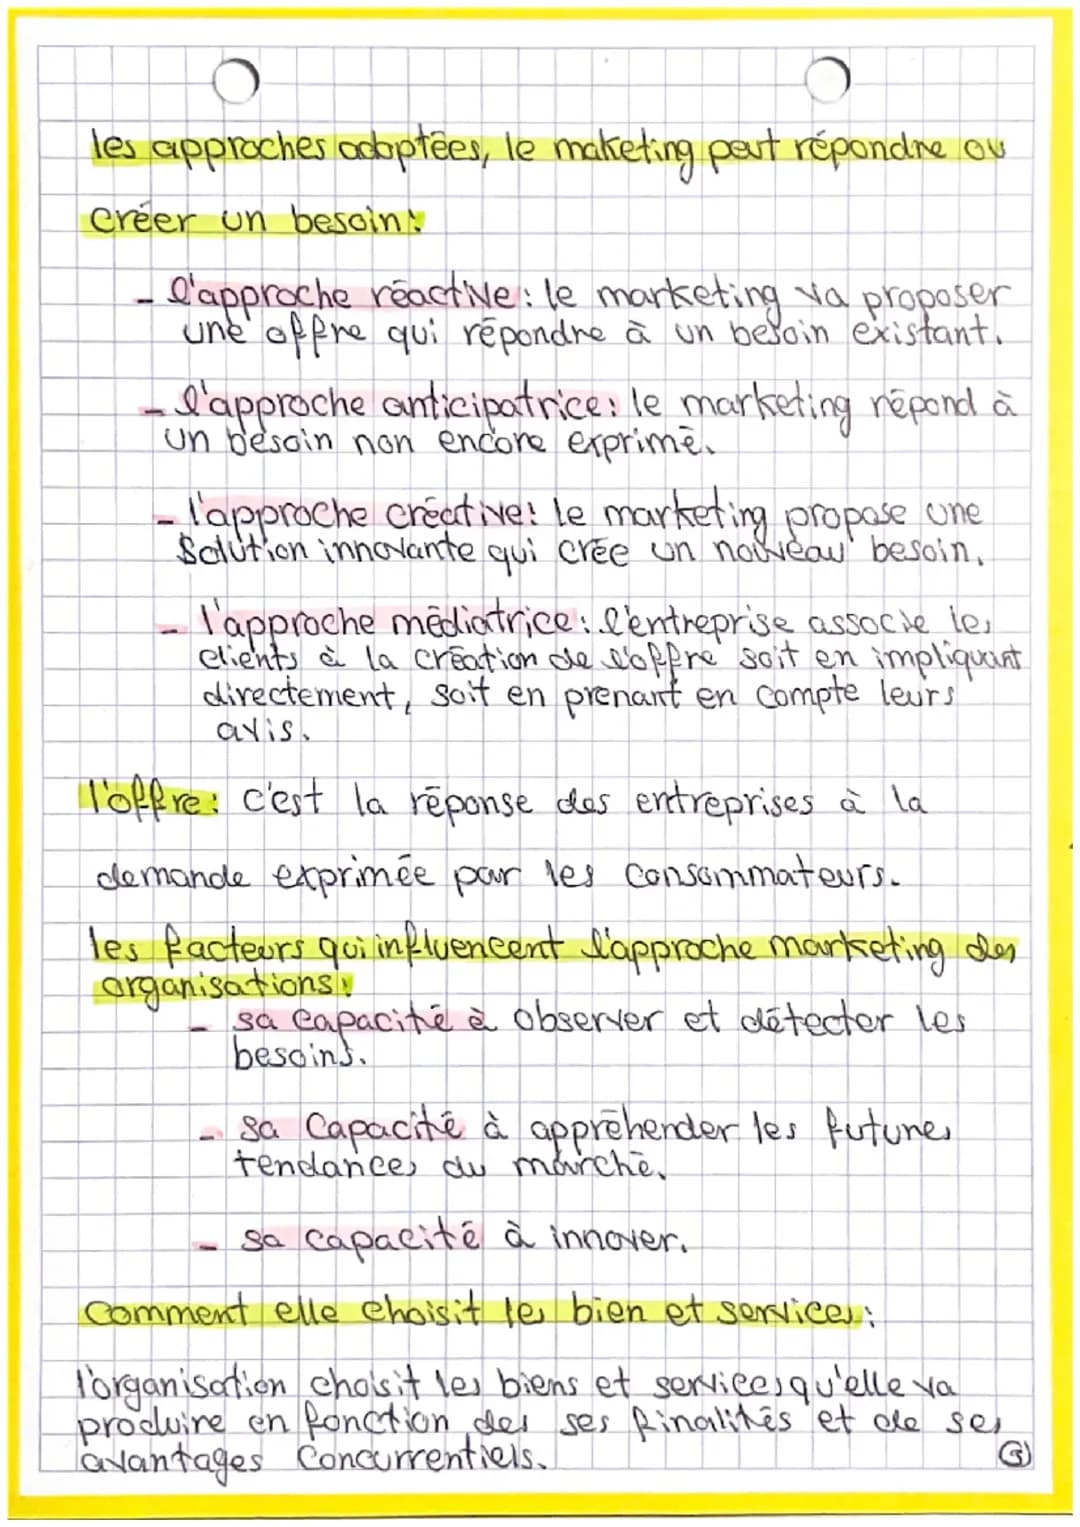 les approches adoptées, le maketing peut répondre ou
créer un besoin:
- l'approche réactive: le marketing va proposer
une offre qui répondre à un besoin existant.
- l'approche anticipatrice: le marketing répond à
un besoin non encore exprimé.
- l'approche créative: le marketing propose une
Solution innovante qui crée un nouveau besoin.
- l'approche médiatrice: l'entreprise associe les
clients à la création de l'offre soit en impliquant
directement, soit en prenant en compte leurs
avis.
l'offre: c'est la réponse des entreprises à la
demande exprimée par les consommateurs.
les facteurs qui influencent l'approche marketing des
organisations:
- sa capacité à observer et détecter les
besoins.
- sa Capacité à appréhender les futures
tendances du marché.
- sa capacité à innover.
Comment elle choisit les bien et services:
l'organisation choisit les biens et services qu'elle va
produire en fonction des ses finalités et de ses
avantages Concurrentiels.
3